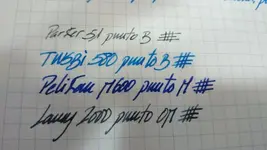 Parker 51 punto B #
TWSBI 580 punto B #
Pelikan M600 punto M #
Lamy 2000 punto OM #